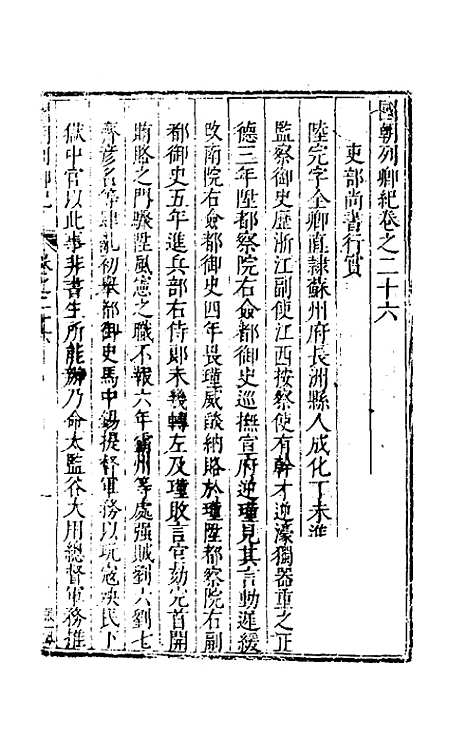 國朝列卿紀卷之二十六
吏部尚書行實
陸完字全卿直隸蘇州府長洲縣人成化丁未進
監察御史歷浙江副使江西按察使有幹才逆濠獨器重之正
德三年陞都察院右僉都御史巡撫宣府逆瑾見其言動遲緩
改南院右僉都御史四年畏瑾威談納賂於瑾陞都察院右副
都御史五年進兵部右侍郎未幾轉左及瑾敗言官劾完首開
賄賂之門驟陞風憲之職不報六年霸州等處強賊劉六劉七
齊彥名等肆亂初舉都御史馬中錫提督軍務以玩寇殃民下
獄中官以此事非書生所能辦乃命太監谷大用總督軍務推